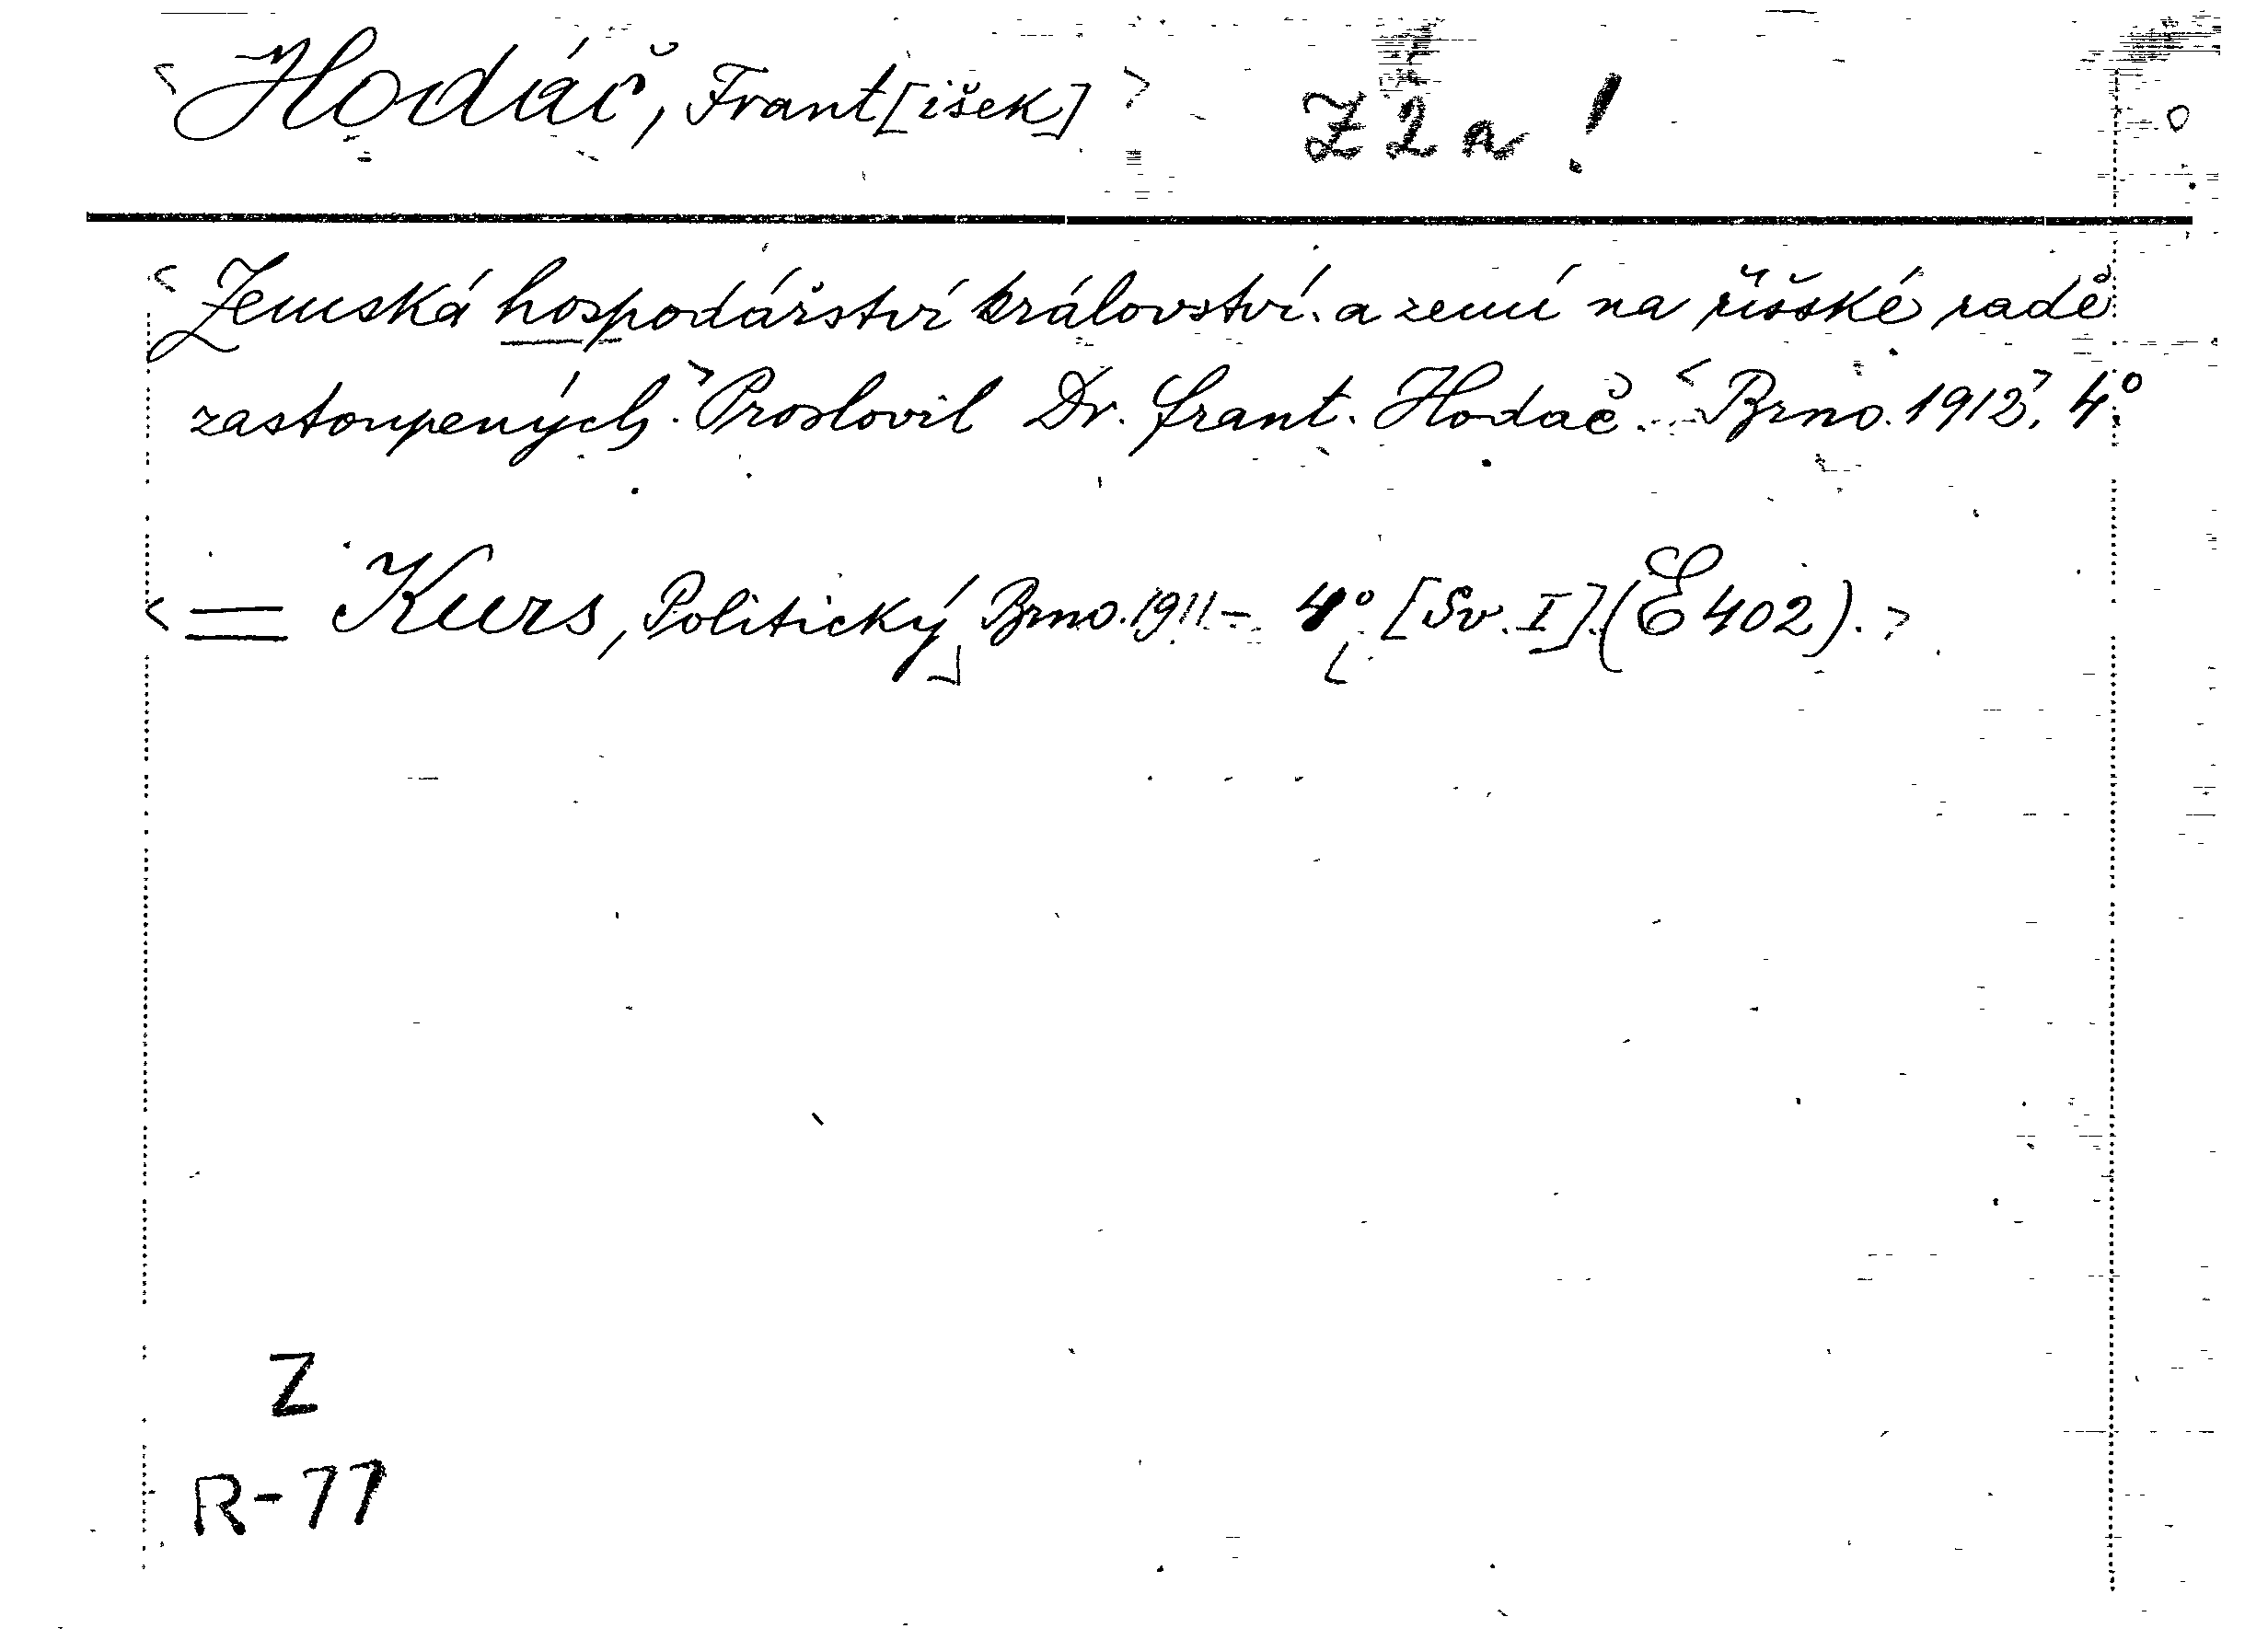 <Hodáč, Frant[išek]> Z 2 a!
<Zemská hospodářství království a zemí na říšské radě
zastoupených.> Proslovil Dr. Frant. Hodač. <Brno. 1912>. 4°
<= Kurs, Politický, Brno. 1911- 4° [Sv. I] (E 402).>
Z
R-77